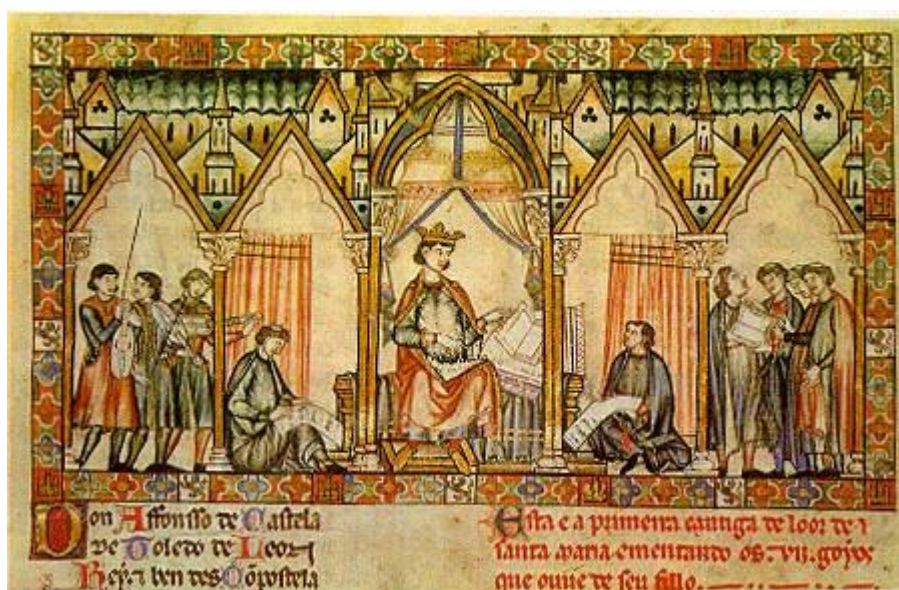 Don Affonsso de Castela
de Toledo de Leon
Rey ⁊ ben des Cõpostela
Esta e a primeira cantiga de loor de s
santa maria ementando os .vii. goyos
que ouue de seu fillo.